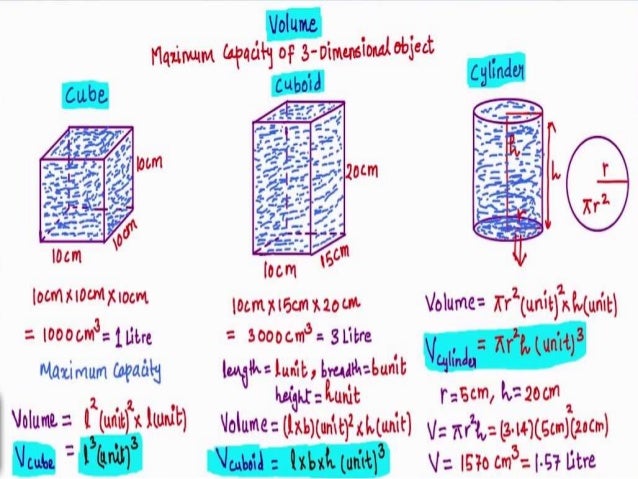 Volume
Maximum Capacity of 3-Dimensional Object
Cube
10cm
10cm
10cm
10cm×10cm×10cm
= 1000cm³ = 1 Litre
Maximum Capacity
Volume = l²(unit)² × l(unit)
Vcube = l³(unit)³
Cuboid
20cm
15cm
10cm
10cm×15cm×20cm
= 3000cm³ = 3 Litre
length = lunit, breadth = bunit
height = hunit
Volume = (l×b)(unit)² × h(unit)
Vcuboid = l×b×h (unit)³
Cylinder
h
h
r
r
πr²
Volume = πr²(unit)² × h(unit)
Vcylinder = πr²h (unit)³
r=5cm, h=20cm
V = πr²h = (3.14)(5cm)²(20cm)
V = 1570 cm³ = 1.57 Litre